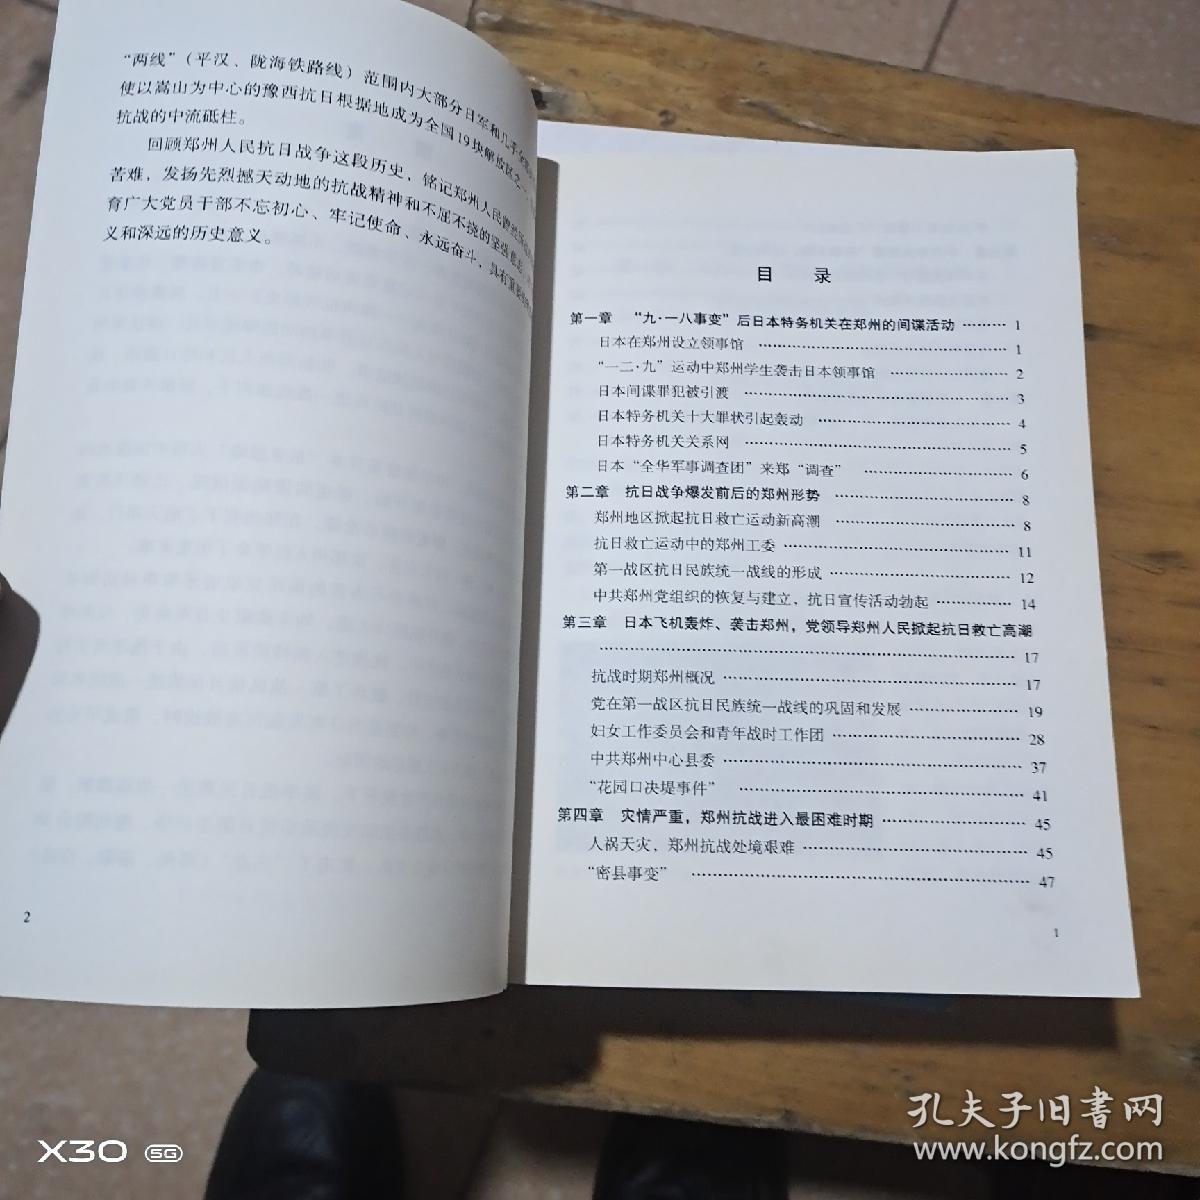 “两线”（平汉、陇海铁路线）范围内大部分日军和几乎全
使以嵩山为中心的豫西抗日根据地成为全国19块解放区之一
抗战的中流砥柱。
回顾郑州人民抗日战争这段历史，铭记郑州人民曾经
苦难，发扬先烈撼天动地的抗战精神和不屈不挠的坚强意志
育广大党员干部不忘初心、牢记使命、永远奋斗，具有重要
义和深远的历史意义。
2
目 录
第一章 “九·一八事变”后日本特务机关在郑州的间谍活动 ……… 1
日本在郑州设立领事馆 ……… 1
“一二·九”运动中郑州学生袭击日本领事馆 ……… 2
日本间谍罪犯被引渡 ……… 3
日本特务机关十大罪状引起轰动 ……… 4
日本特务机关关系网 ……… 5
日本“全华军事调查团”来郑“调查” ……… 6
第二章 抗日战争爆发前后的郑州形势 ……… 8
郑州地区掀起抗日救亡运动新高潮 ……… 8
抗日救亡运动中的郑州工委 ……… 11
第一战区抗日民族统一战线的形成 ……… 12
中共郑州党组织的恢复与建立，抗日宣传活动勃起 ……… 14
第三章 日本飞机轰炸、袭击郑州，党领导郑州人民掀起抗日救亡高潮
……… 17
抗战时期郑州概况 ……… 17
党在第一战区抗日民族统一战线的巩固和发展 ……… 19
妇女工作委员会和青年战时工作团 ……… 28
中共郑州中心县委 ……… 37
“花园口决堤事件” ……… 41
第四章 灾情严重，郑州抗战进入最困难时期 ……… 45
人祸天灾，郑州抗战处境艰难 ……… 45
“密县事变” ……… 47
1
X30 5G
孔夫子旧书网
www.kongfz.com